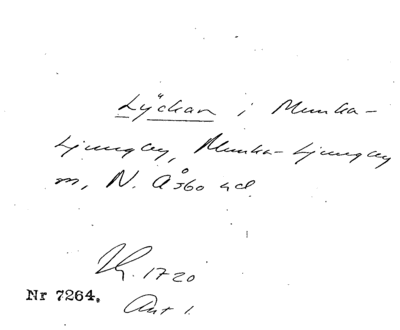 Lyckan i Munka-
Ljungby, Munka-Ljungby
sn, N. Åsbo hd
1720
Nr 7264.
Ant 1.